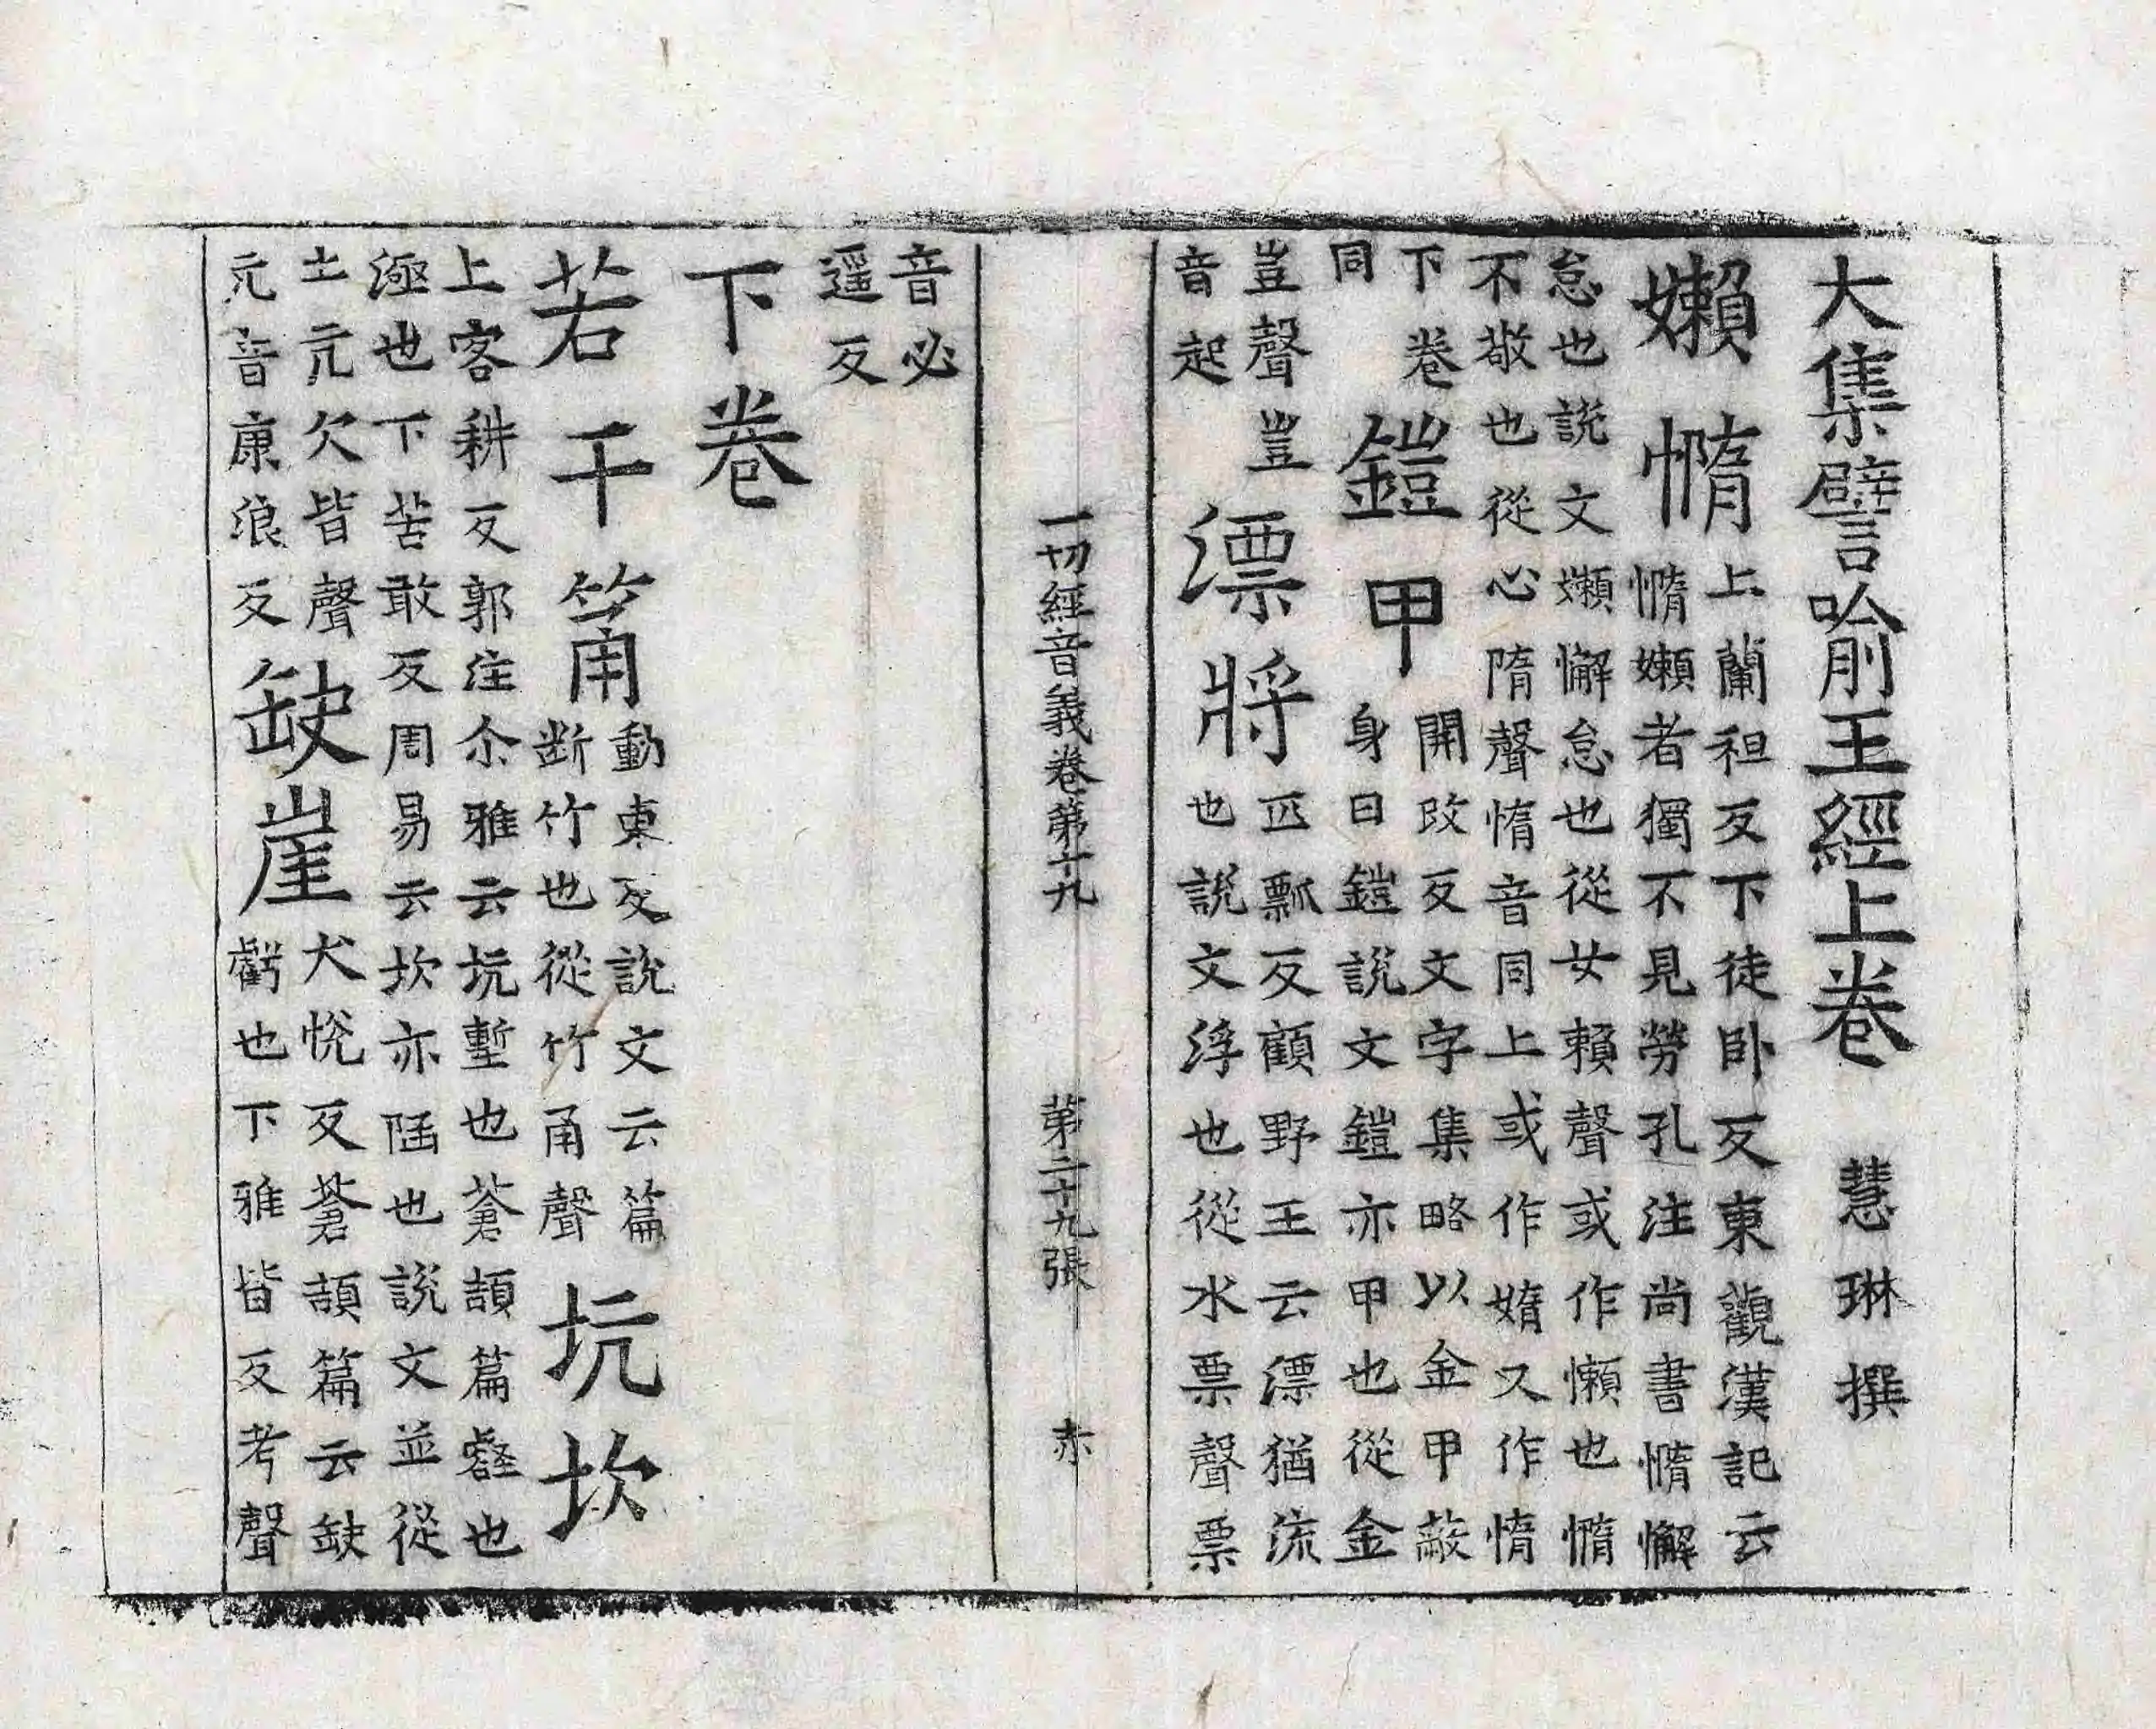 大集譬喻王經上卷 慧琳撰
嬾憜
上蘭袒反下徒卧反東觀漢記云
憜嬾者獨不見勞孔注尚書憜懈
怠也說文嬾懈怠也從女賴聲或作懶也憜
不敬也從心隋聲惰音同上或作媠又作惰
下卷
同
鎧甲
開改反文字集略以金甲蔽
身曰鎧說文鎧亦甲也從金
豈聲豈
音起
漂將
匹瓢反顧野王云漂猶流
也說文浮也從水票聲票
一切經音義卷第十九 第二十九張 赤
音必
遥反
下卷
若干筩
動東反說文云篇
断竹也從竹甬聲
坑坎
上客耕反郭注尒雅云坑壍也蒼頡篇壑也
也下苦敢反周易云坎亦陷也說文並從
土亢欠皆聲
亢音康浪反
缺崖
犬悅反蒼頡篇云缺
虧也下雅皆反考聲